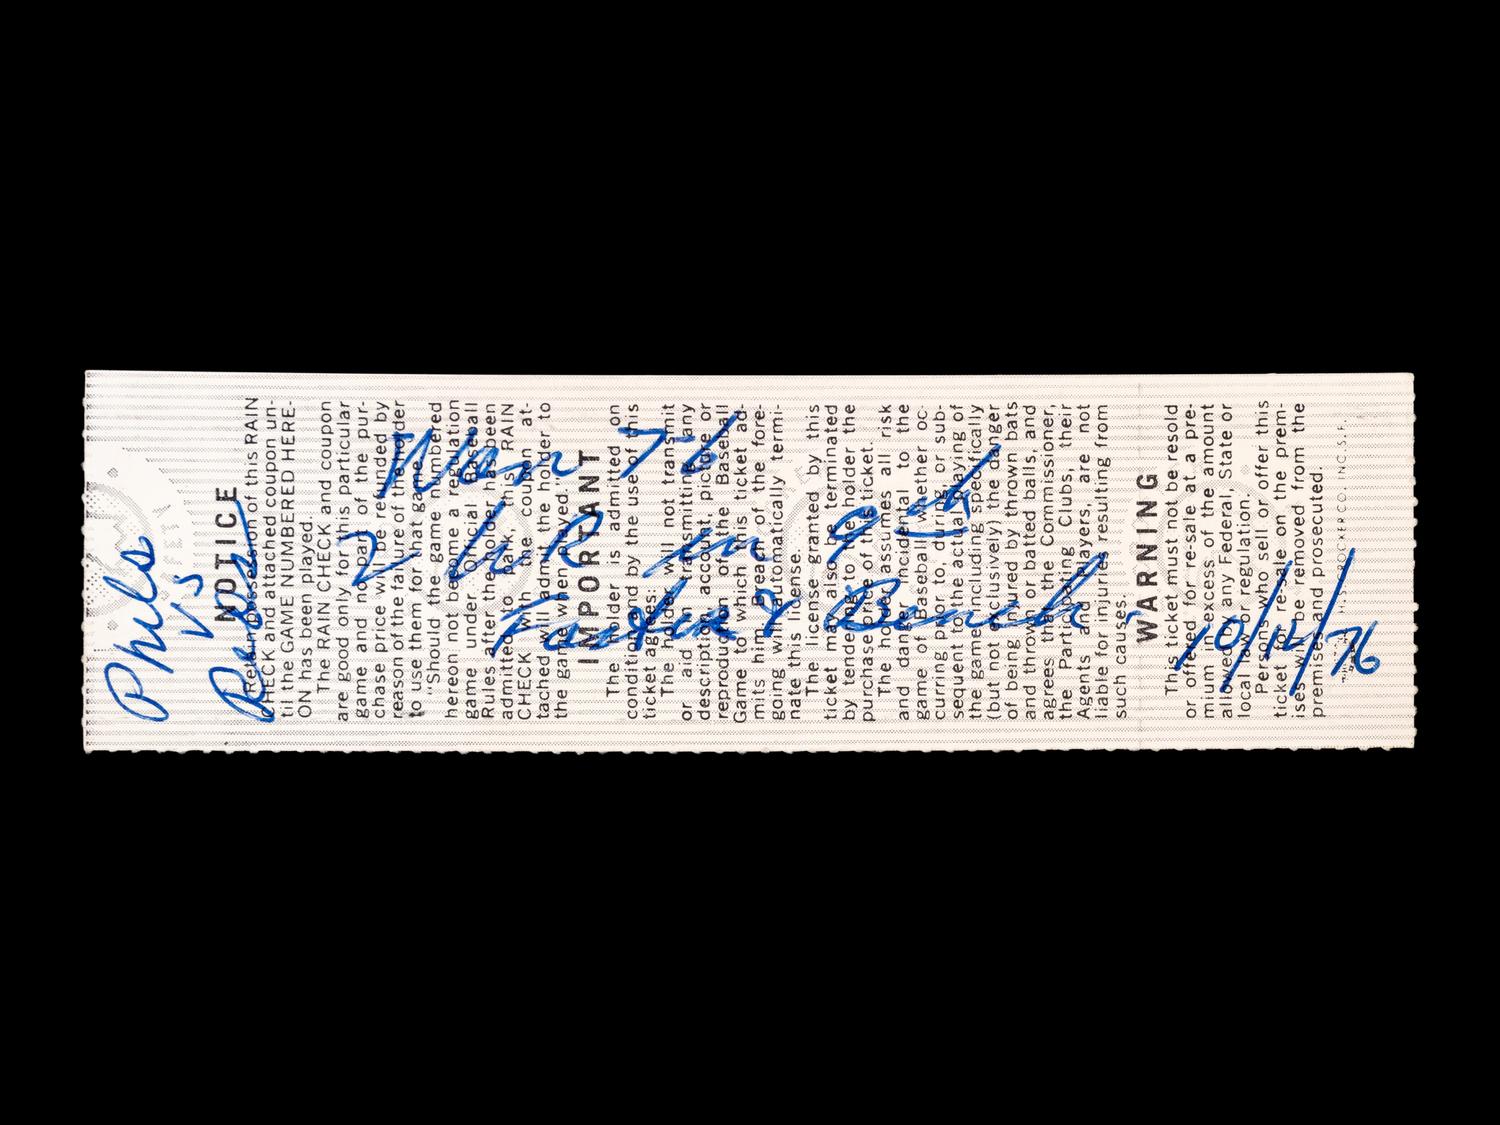 Phils
vs
Reds
Won 7-6
2 HR in 9th
Foster & Bench
10/14/76
NOTICE
Retain possession of this RAIN
CHECK and attached coupon un-
til the GAME NUMBERED HERE-
ON has been played.
The RAIN CHECK and coupon
are good only for this particular
game and no part of the pur-
chase price will be refunded by
reason of the failure of the holder
to use them for that game.
"Should the game numbered
hereon not become a regulation
game under Official Baseball
Rules after the holder has been
admitted to park, this RAIN
CHECK with the coupon at-
tached will admit the holder to
the game when played."
IMPORTANT
The holder is admitted on
condition and by the use of this
ticket agrees:
The holder will not transmit
or aid in transmitting any
description, account, picture or
reproduction of the Baseball
Game to which this ticket ad-
mits him. Breach of the fore-
going will automatically termi-
nate this license.
The license granted by this
ticket may also be terminated
by tendering to the holder the
purchase price of this ticket.
The holder assumes all risk
and danger incidental to the
game of Baseball whether oc-
curring prior to, during, or sub-
sequent to the actual playing of
the game, including specifically
(but not exclusively) the danger
of being injured by thrown bats
and thrown or batted balls, and
agrees that the Commissioner,
the Participating Clubs, their
Agents and Players, are not
liable for injuries resulting from
such causes.
WARNING
This ticket must not be resold
or offered for re-sale at a pre-
mium in excess of the amount
allowed by any Federal, State or
local law or regulation.
Persons who sell or offer this
ticket for re-sale on the prem-
ises will be removed from the
premises and prosecuted.
CROCKER CO. INC. S.F.